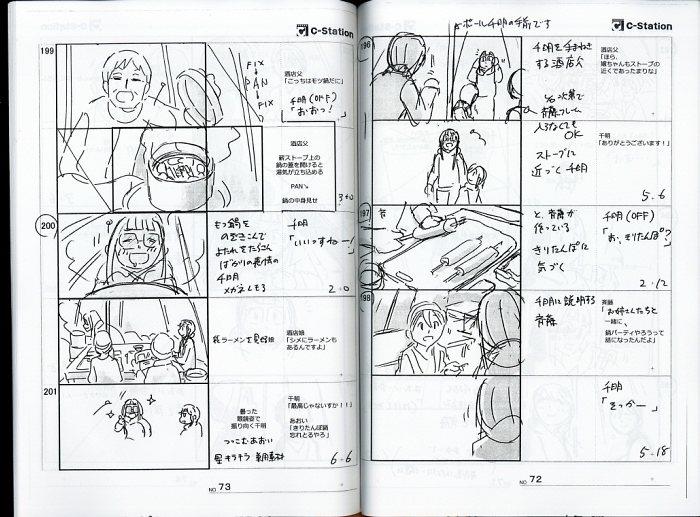 C-Station
ボール千明の手前です
196
千明を手まねき
する酒店父
酒店父
「ほら、
嬢ちゃんもストーブの
近くであったまりな」
斉藤フレーム
入らなくても
OK
千明
「ありがとうございます!」
ストーブに
近づく千明
5.6
197
と、斉藤が
作っている
きりたんぽに
気づく
千明(OFF)
「お、きりたんぽ?」
2.12
198
千明に説明する
斉藤
斉藤
「お姉さんたちと
一緒に、
鍋パーティやろうって
話になったんだよ」
千明
「そっかー」
5.18
NO 72
C-Station
199
FIX
PAN
FIX
酒店父
「こっちはモツ鍋だに」
千明(OFF)
「おおっ!」
酒店父
薪ストーブ上の
鍋の蓋を開けると
湯気が立ち込める
PAN
鍋の中身見せ
3+0
200
もつ鍋を
のぞきこんで
よだれをたらさん
ばかりの表情の
千明
メガネくもる
千明
「いいっすねー!」
2.0
桜ラーメンを見せ
酒店娘
「シメにラーメンも
あるんですよ」
201
曇った
眼鏡姿で
振り向く千明
千明
「最高じゃないすか!!」
つっこむあおい
あおい
「きりたんぽ鍋
忘れとるやろ」
星キラキラ
6.6
NO 73